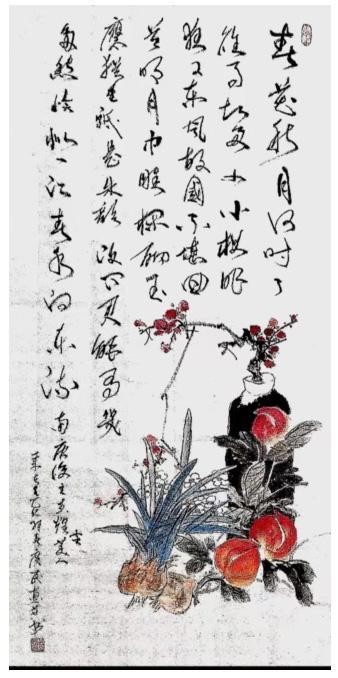 春花秋月何时了
往事知多少小楼昨
夜又东風故國不堪回
首明月中雕欄砌玉
應猶在祗是朱顔改问君能有幾
多愁恰似一江春水向东流 南唐後主李煜